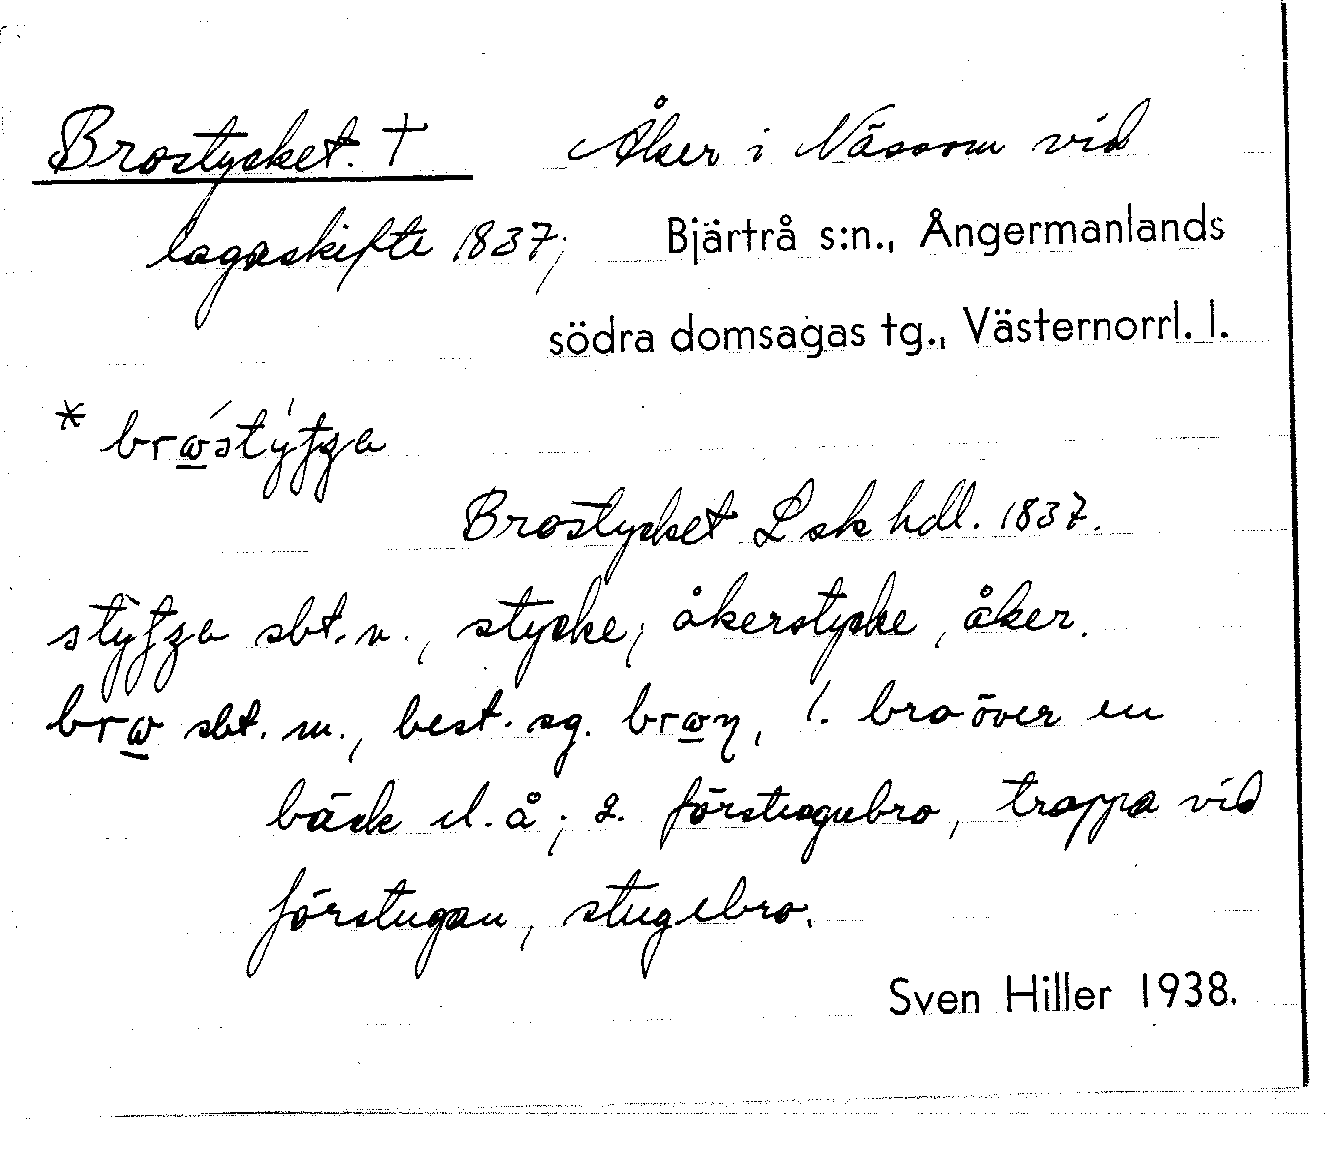 Brostycket. † Åker i Nässom vid
lagaskifte 1837; Bjärtrå s:n., Ångermanlands
södra domsagas tg., Västernorrl. l.
Brostycket Lsk hdl. 1837.
sbt. n., stycke, åkerstycke, åker.
sbt. m., best. sg. 1. bro över en
bäck el. å; 2. förstugubro, trappa vid
förstugan, stugebro.
Sven Hiller 1938.